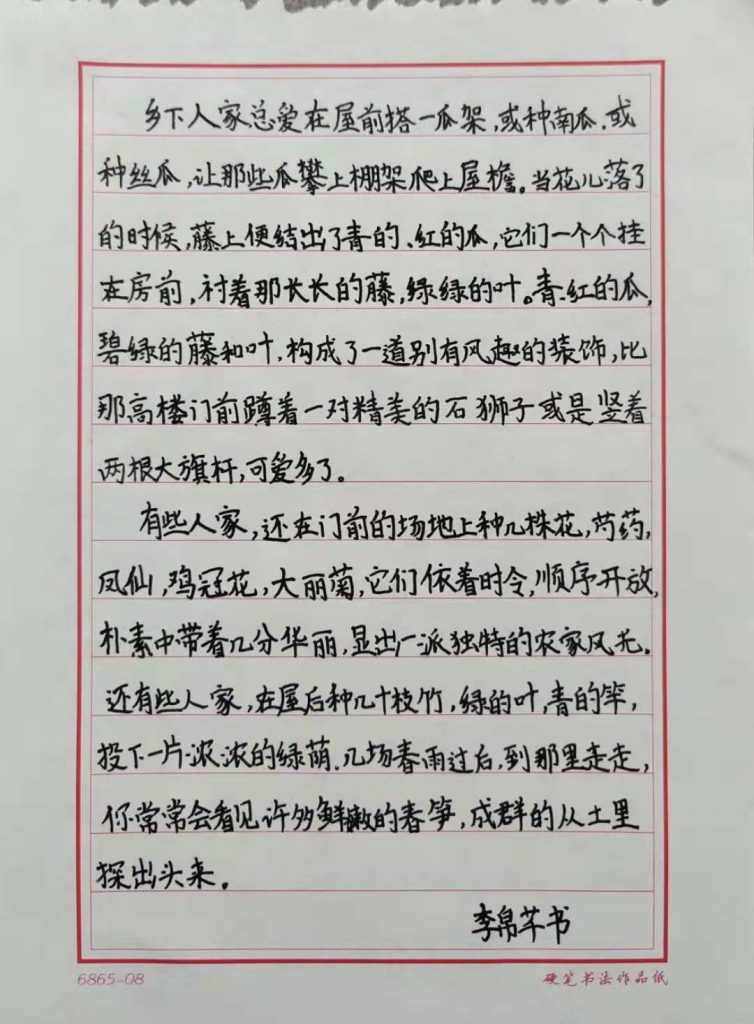 乡下人家总爱在屋前搭一瓜架,或种南瓜.或
种丝瓜,让那些瓜攀上棚架爬上屋檐。当花儿落了
的时候,藤上便结出了青的、红的瓜,它们一个个挂
在房前,衬着那长长的藤,绿绿的叶。青.红的瓜,
碧绿的藤和叶,构成了一道别有风趣的装饰,比
那高楼门前蹲着一对精美的石狮子或是竖着
两根大旗杆,可爱多了。
有些人家,还在门前的场地上种几株花,芍药,
凤仙,鸡冠花,大丽菊,它们依着时令,顺序开放,
朴素中带着几分华丽,显出一派独特的农家风光.
还有些人家,在屋后种几十枝竹,绿的叶,青的竿,
投下一片浓浓的绿荫.几场春雨过后,到那里走走,
你常常会看见许多鲜嫩的春笋,成群的从土里
探出头来。
李帛芊书
6865-08 硬笔书法作品纸